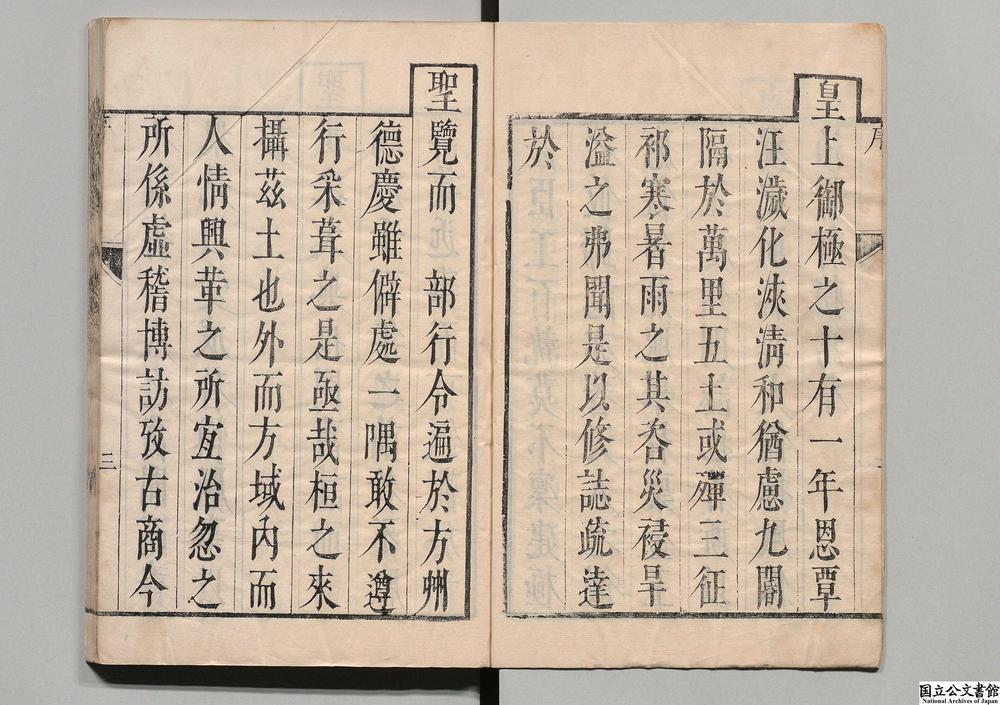 序
皇上御極之十有一年恩覃
汪濊化浹淸和猶慮九閽
隔於萬里五土或殫三征
祁寒暑雨之其咨災祲旱
溢之弗聞是以修誌疏達
於
聖覽而部行令遍於方州
德慶雖僻處一隅敢不遵
行釆葺之是亟哉桓之來
攝茲土也外而方域內而
人情興革之所宜治忽之
所係虛稽博訪攷古商今
三
国立公文書館
National Archives of Japan